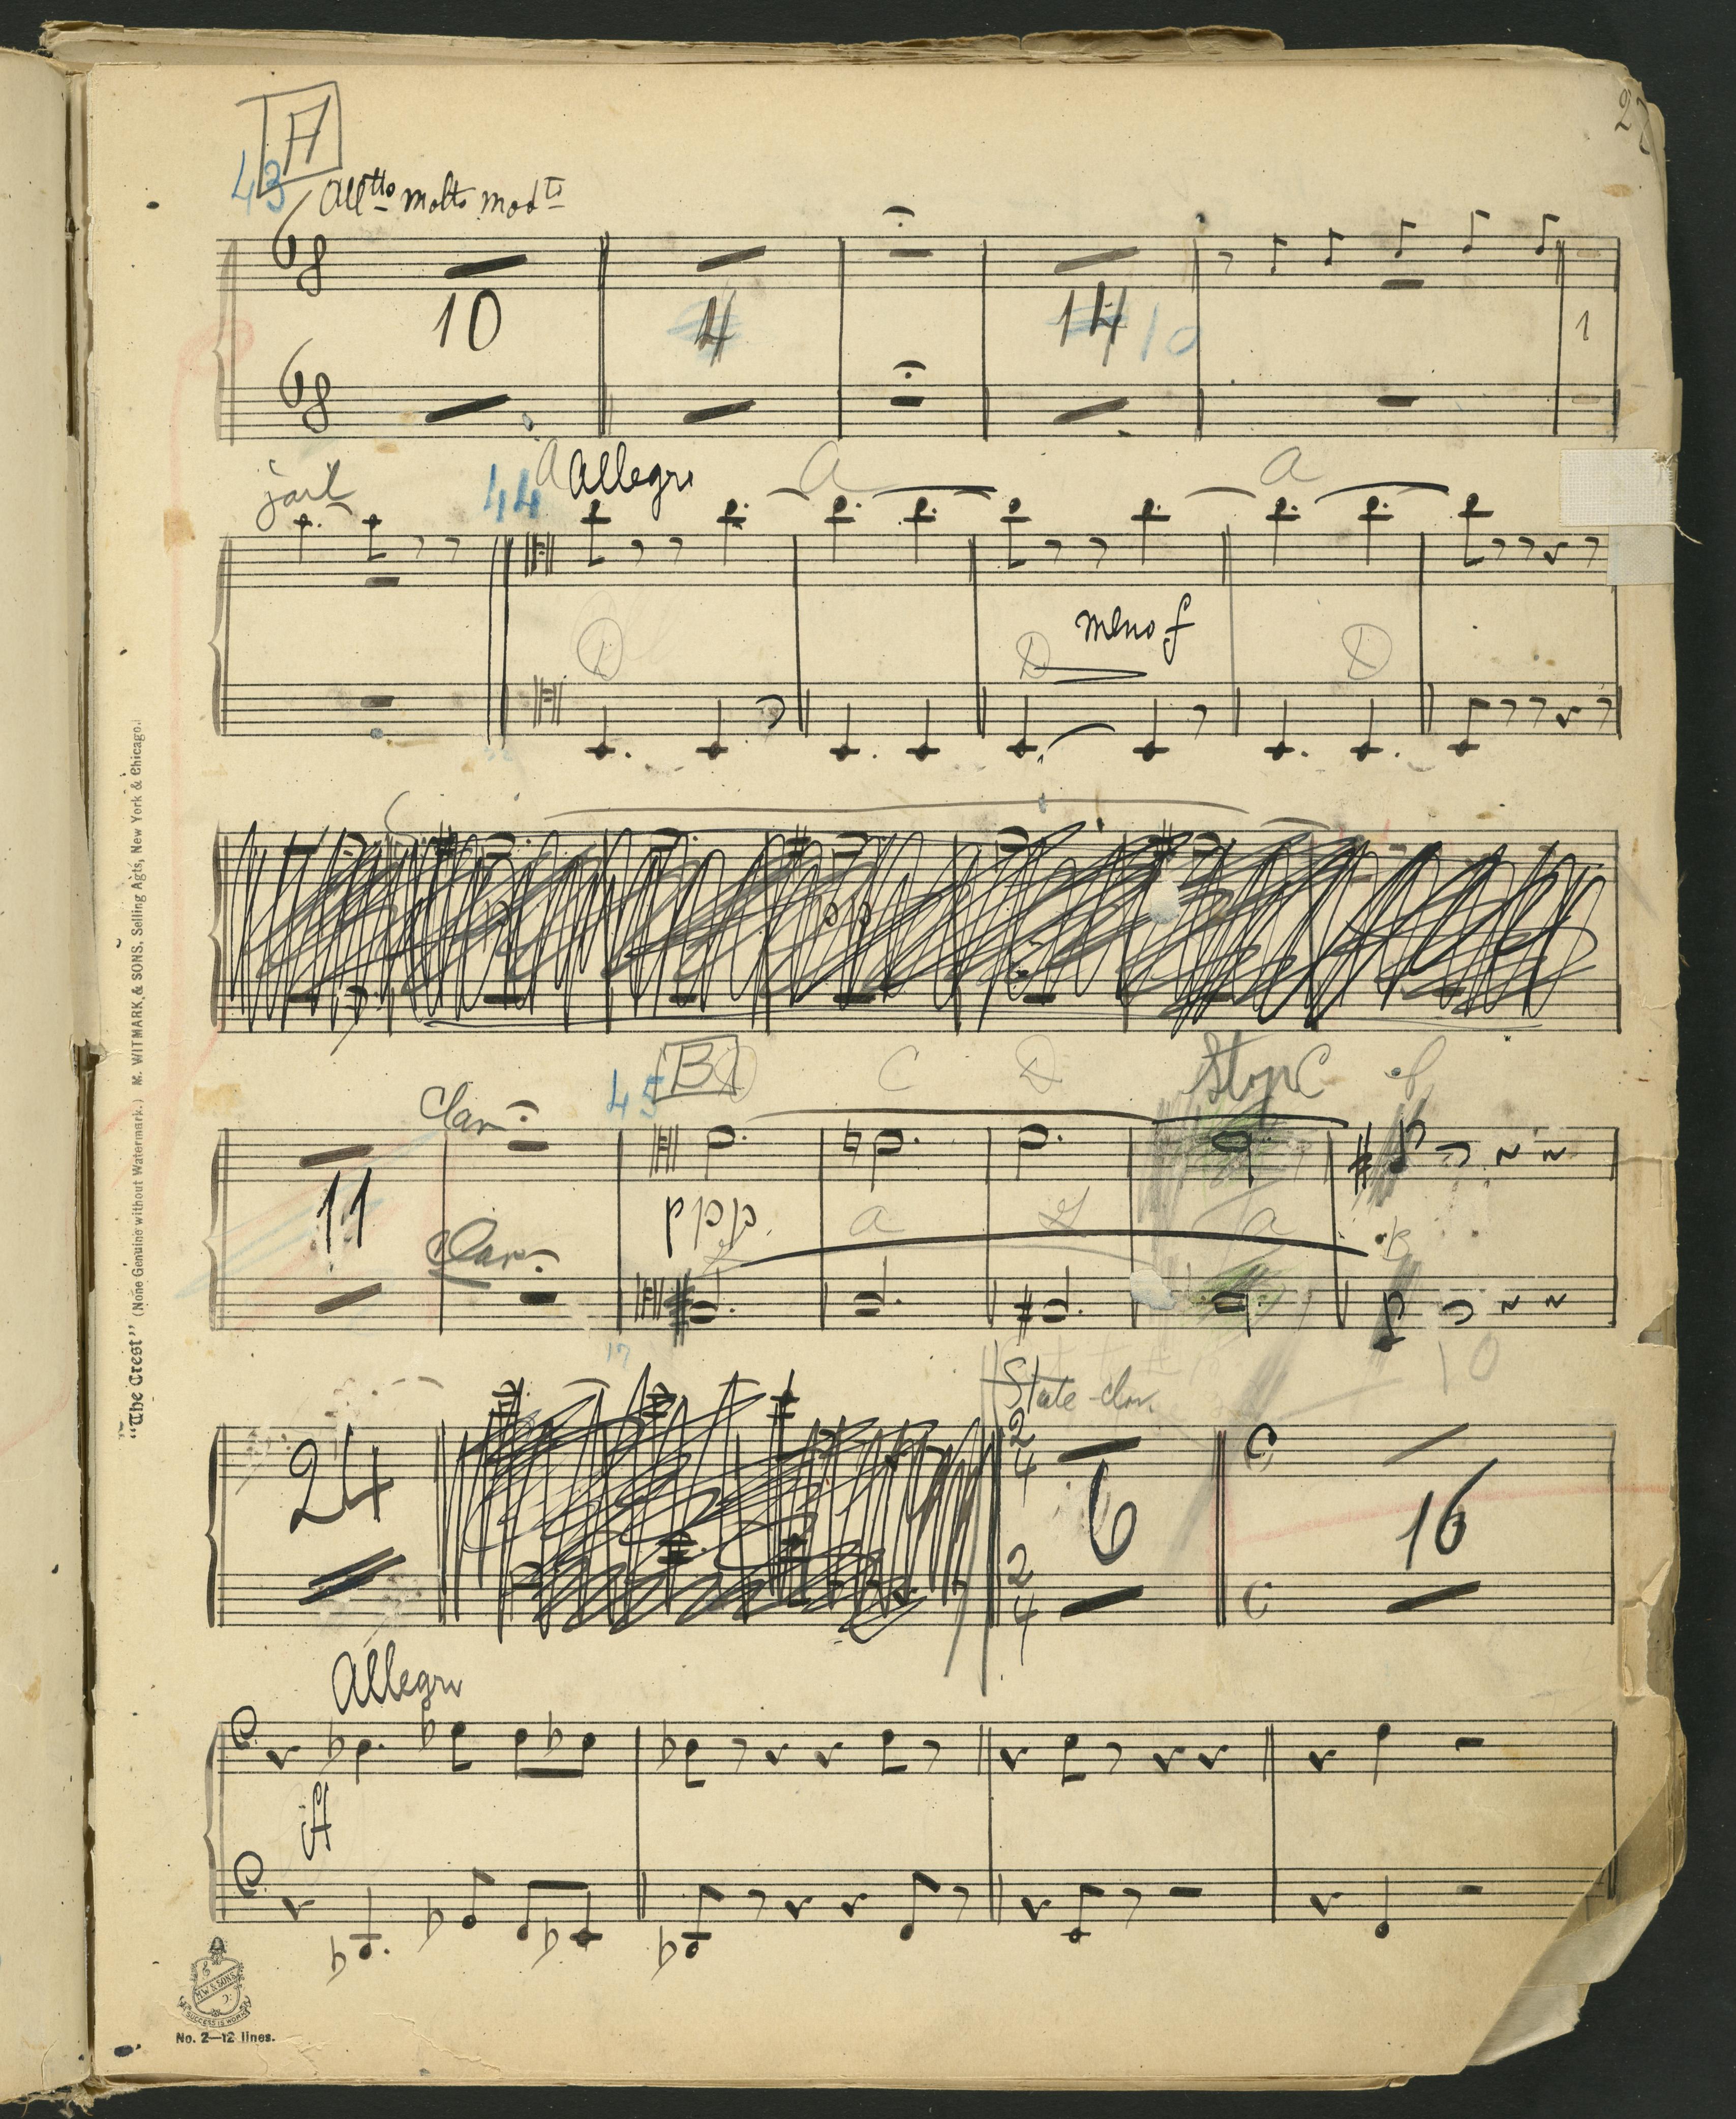 27
A
43
Alltto molto modto
10 4 14 10 1
44 A Allegro A A
D D meno f D
45 B D C D C f
Clar.
11 ppp a a B
Clar.
17 10
24 6 16
2 4 C
2 4 C
Allegro
ff
"The Crest" (None Genuine without Watermark.) M. WITMARK & SONS. Selling Agts, New York & Chicago.
M.W & SONS
SUCCESS IS WORK
No. 2—12 lines.